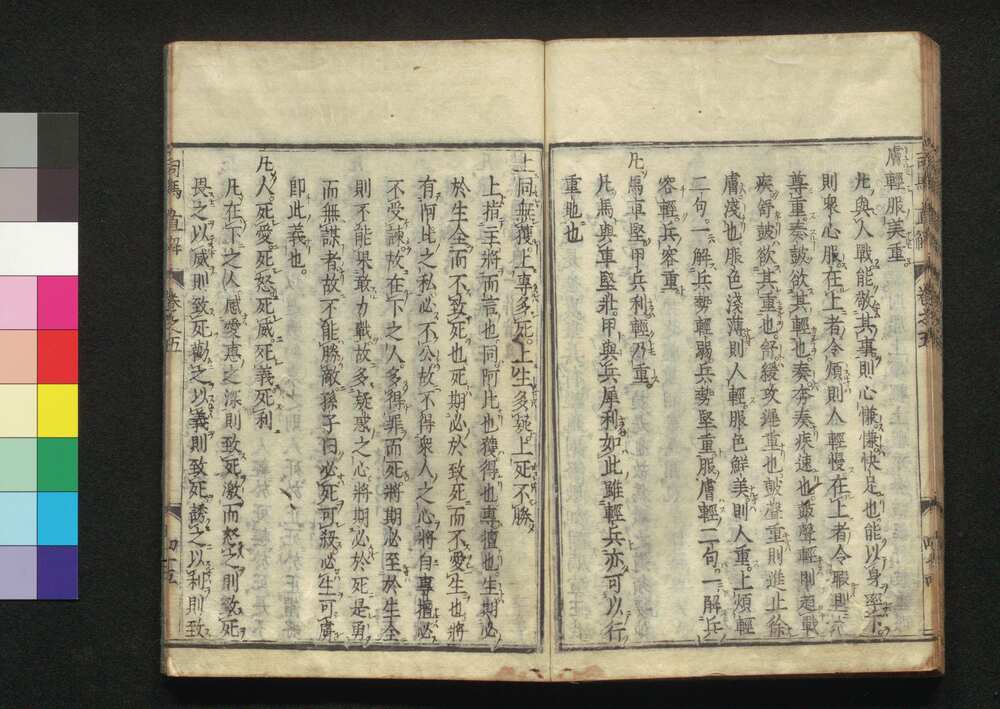 膚輕服美重
凡與人戰能敬其事則心慊慊快足也能以身率下
則衆心服在上者令煩則人輕慢在上者令暇則人
尊重奏鼓欲其輕也奏奔奏疾速也鼓聲輕則趨戰
疾舒鼓欲其重也舒緩攻遲重也鼓聲重則進止徐
膚淺也服色淺薄則人輕服色鮮美則人重上煩輕
二句一解兵勢輕弱兵勢堅重服膚輕二句一解兵
容輕兵容重
凡馬車堅甲兵利輕乃重
凡馬與車堅甲與兵犀利如此雖輕兵亦可以行
重地也
上同無獲上專多死上生多疑上死不勝
上指主將而言也同阿比也獲得也專擅也生期必
於生全而不致死也死期必於致死而不愛生也將
有阿比之私必不公故不得衆人之心將自專擅必
不受諫故在下之人多得罪而死將期必至於生全
則不能果敢力戰故多疑惑之心將期必於死是勇
而無謀者故不能勝敵孫子曰必死可殺必生可虜
即此義也
凡人死愛死怒死威死義死利
凡在下之人感愛惠之深則致死激而怒之則致死
畏之以威則致死勸之以義則致死誘之以利則致
司馬直解
卷之五
四十五